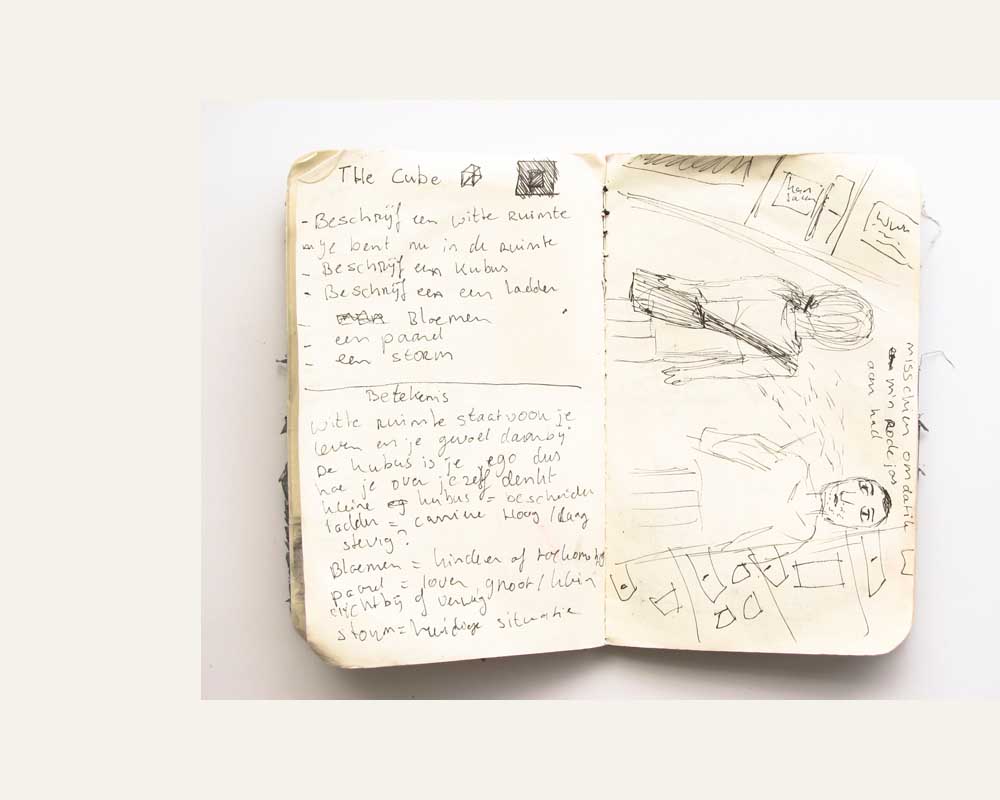 THe Cube
- Beschrijf een witte Ruimte
je bent nu in de Ruimte
- Beschrijf een Kubus
- Beschrijf een een ladder
- Bloemen
- een paard
- een storm
Betekenis
witte Ruimte staat voor je
leven en je gevoel daarbij
De kubus is je ego dus
hoe je over jezelf denkt
kleine kubus = bescheiden
ladder = carriere Hoog / laag
stevig?
Bloemen = kinderen of toekomstig
paard = lover groot / klein
dichtbij of verweg
storm = huidige situatie
misschien omdat ik
m'n Rode jas
aan had